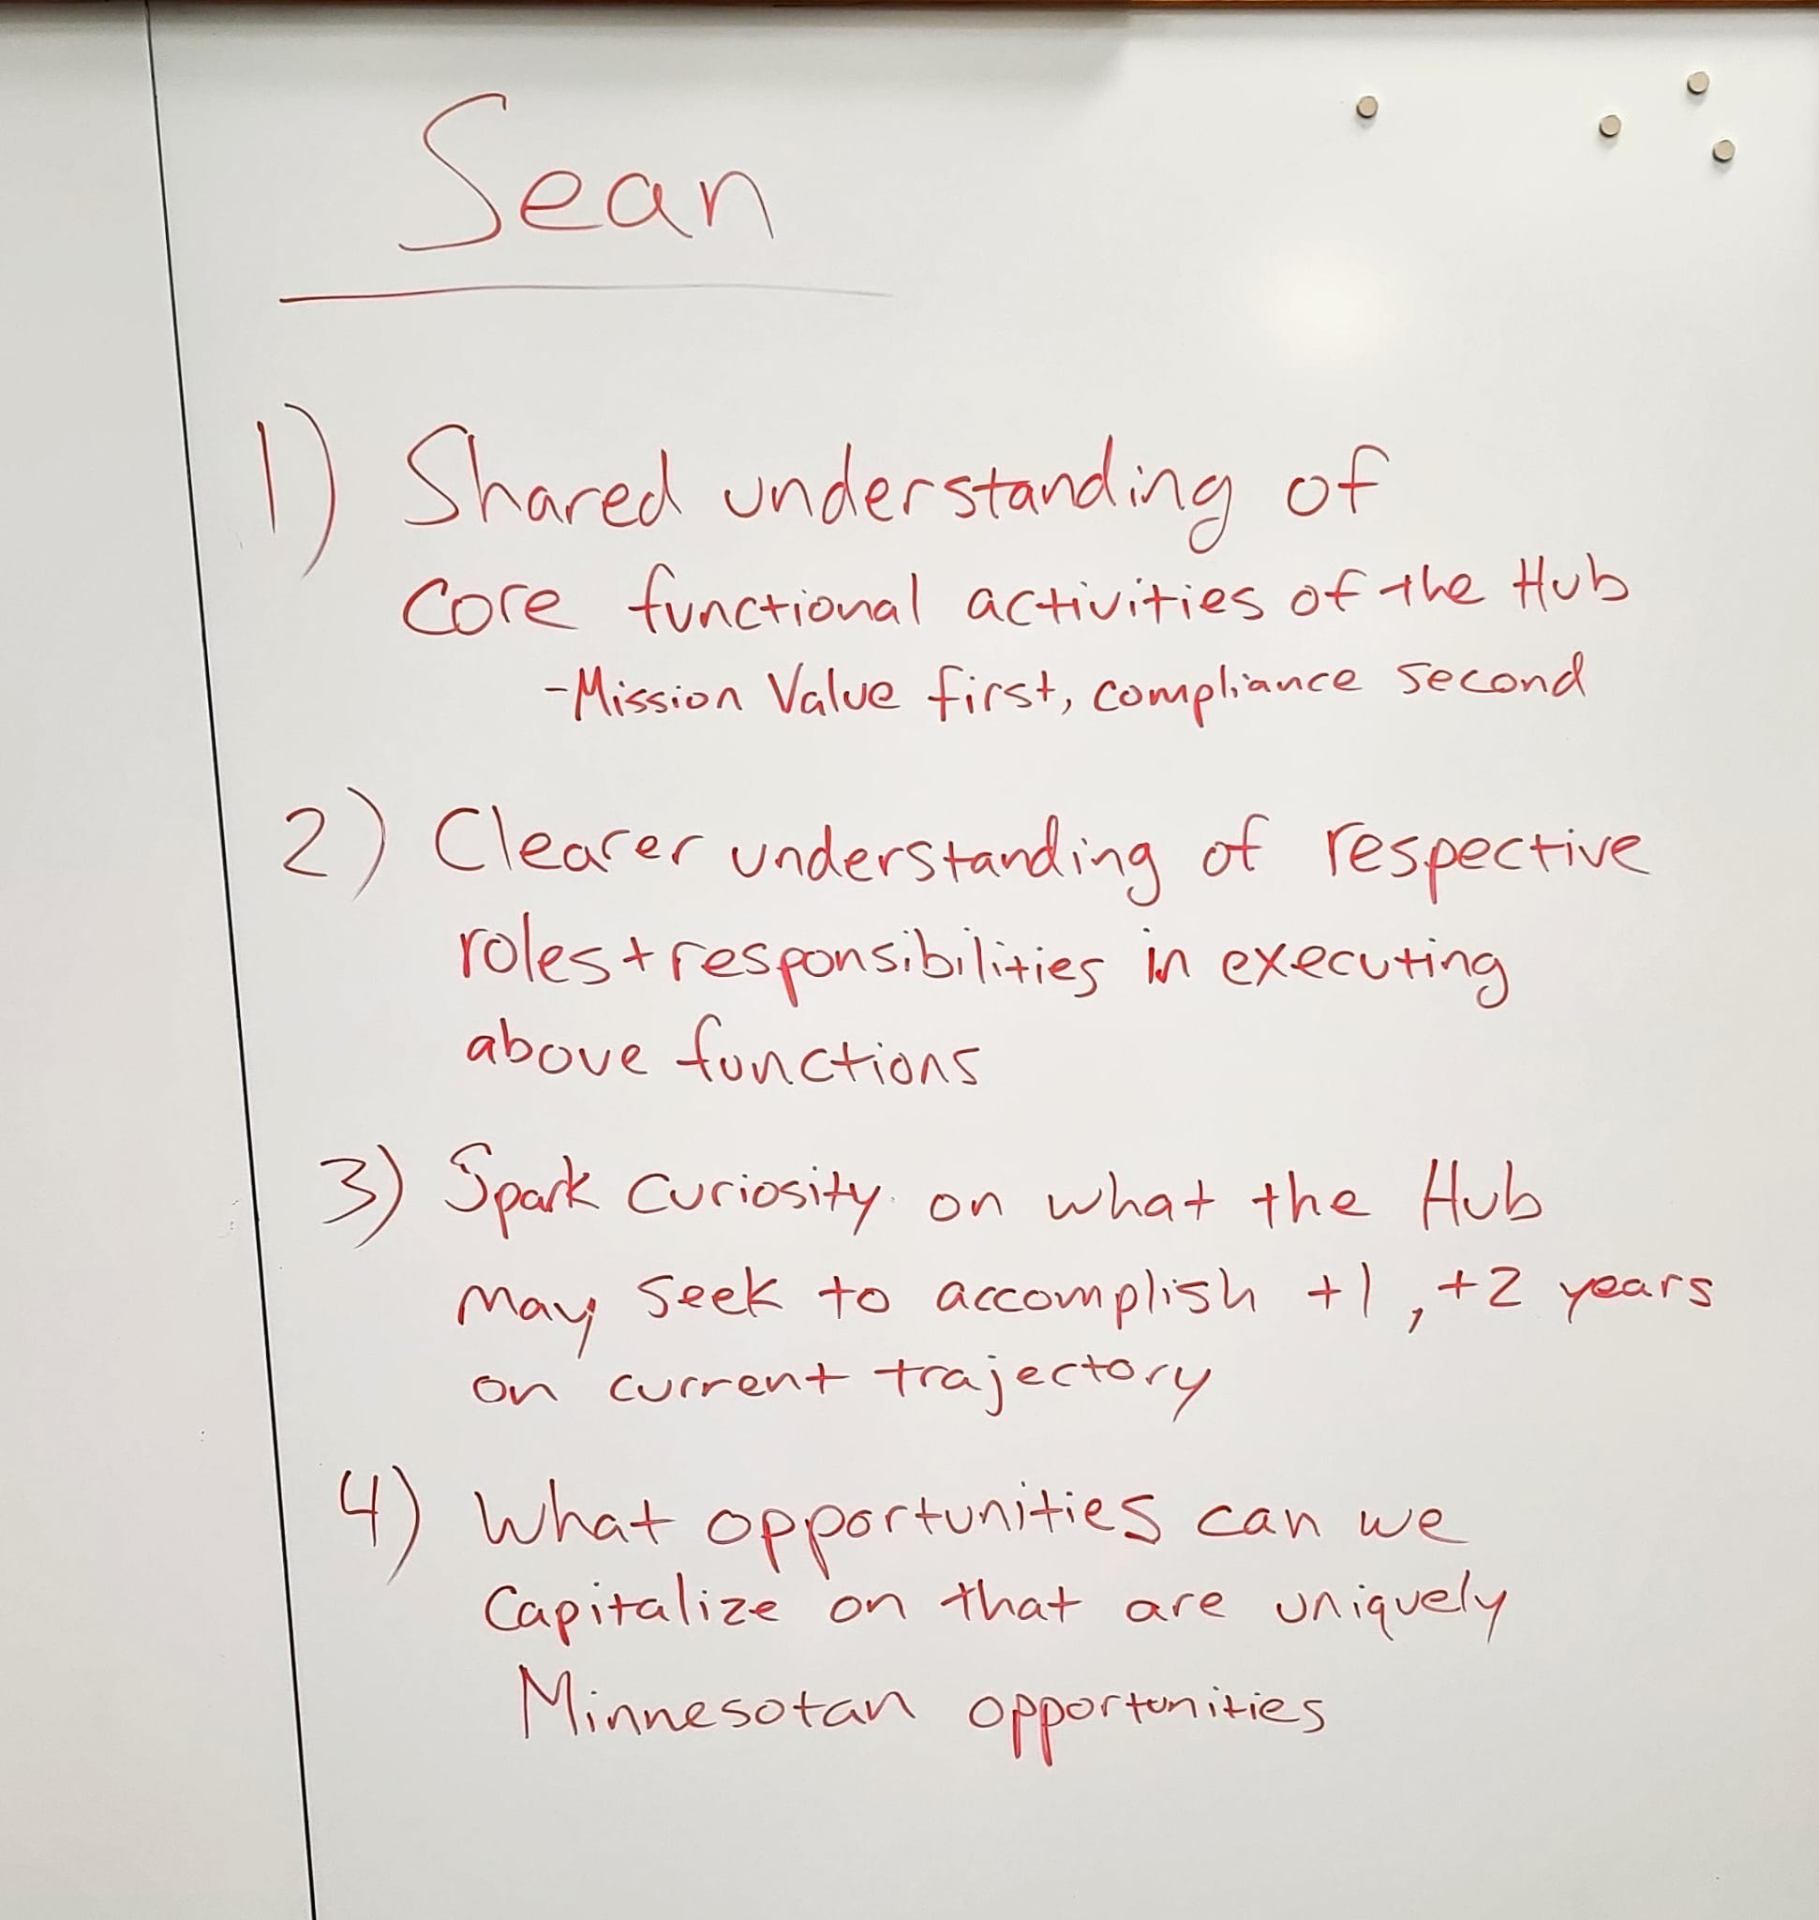 Sean
1) Shared understanding of
core functional activities of the Hub
-Mission Value first, compliance second
2) Clearer understanding of respective
roles+responsibilities in executing
above functions
3) Spark curiosity on what the Hub
may seek to accomplish +1, +2 years
on current trajectory
4) What opportunities can we
Capitalize on that are uniquely
Minnesotan opportunities